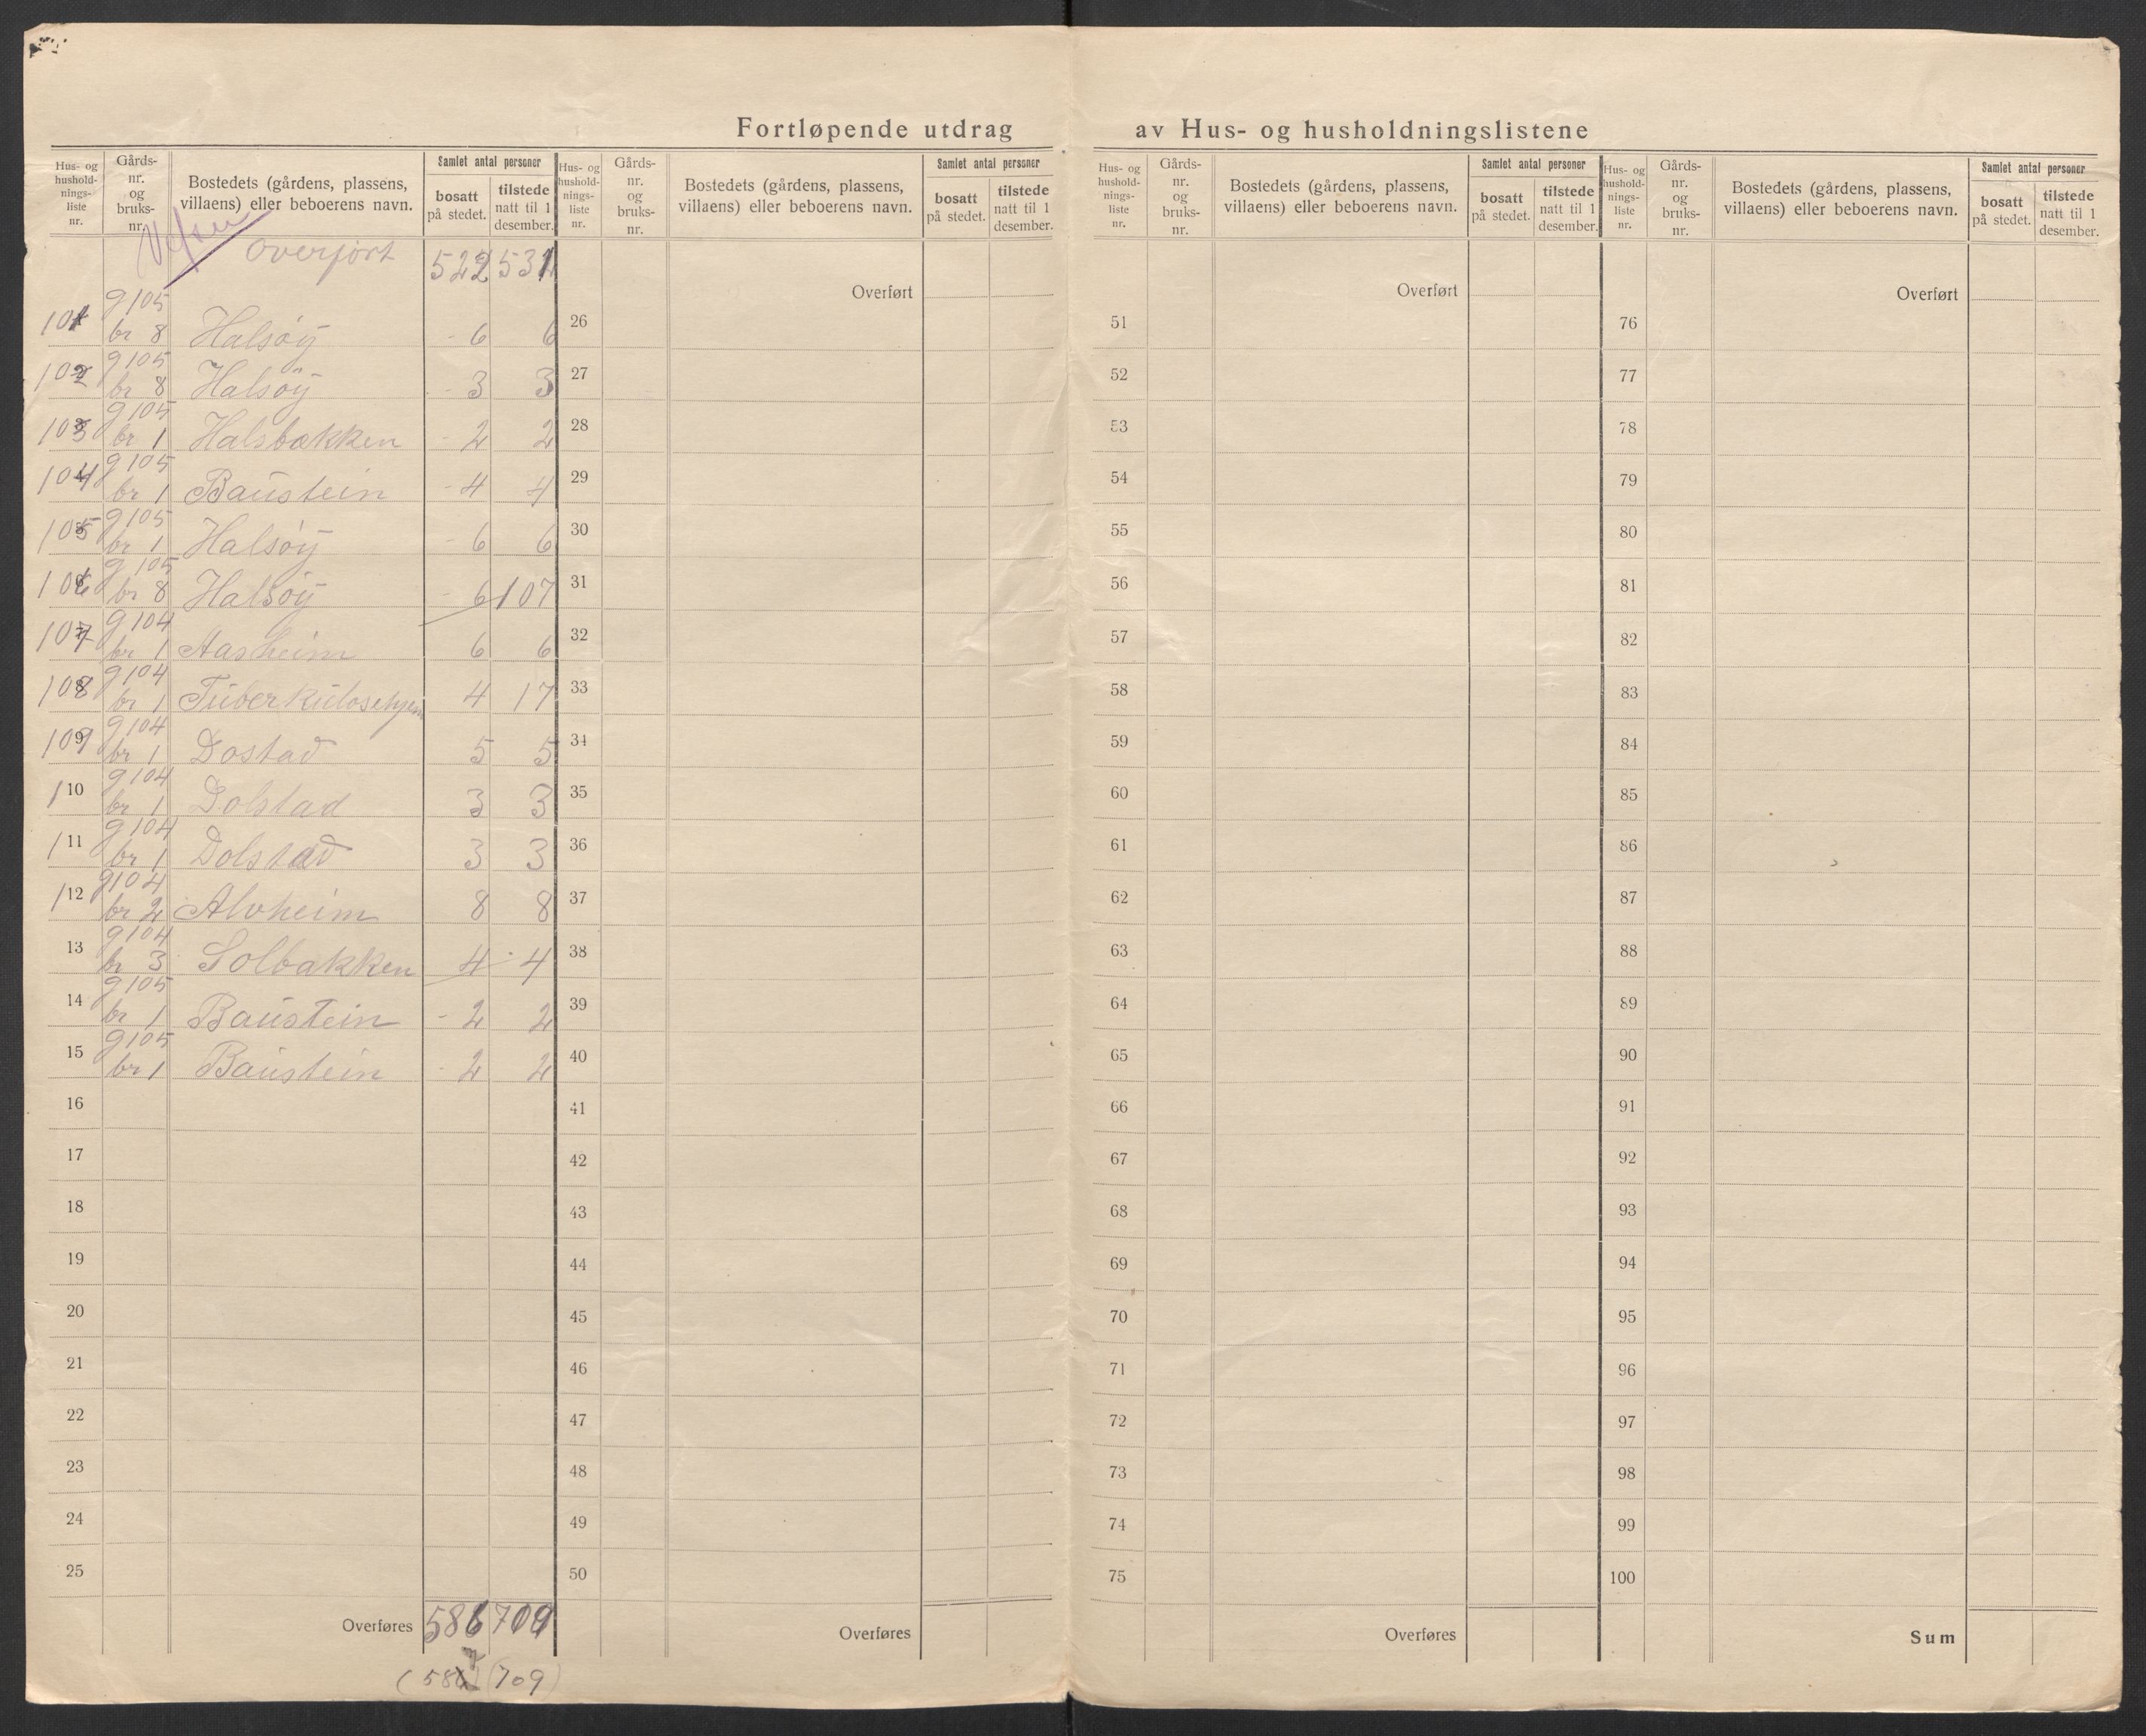 Fortløpende utdrag av Hus- og husholdningslistene
Hus- og husholdnings-liste nr. Gårds-nr. og bruks-nr. Bostedets (gårdens, plassens, villaens) eller beboerens navn. Samlet antal personer bosatt på stedet. tilstede natt til 1 desember.
Vefsn
overført 522 531
101 g 105 br 8 Halsöy - 6 6
102 g 105 br 8 Halsöy - 3 3
103 g 105 br 1 Halsbakken - 2 2
104 g 105 br 1 Baustein - 4 4
105 g 105 br 1 Halsöy - 6 6
106 g 105 br 8 Halsöy - 6 107
107 g 104 br 1 Aasheim 6 6
108 g 104 br 1 Tuberkulosehjem 4 17
109 g 104 br 1 Dostad 5 5
110 g 104 br 1 Dolstad 3 3
111 g 104 br 1 Dolstad 3 3
112 g 104 br 2 Alvheim 8 8
13 g 104 br 3 Solbakken 4 4
14 g 105 br 1 Baustein - 2 2
15 g 105 br 1 Baustein - 2 2
16
17
18
19
20
21
22
23
24
25
Overføres 586 709
(587) (709)
Hus- og husholdnings-liste nr. Gårds-nr. og bruks-nr. Bostedets (gårdens, plassens, villaens) eller beboerens navn. Samlet antal personer bosatt på stedet. tilstede natt til 1 desember.
Overført
26
27
28
29
30
31
32
33
34
35
36
37
38
39
40
41
42
43
44
45
46
47
48
49
50
Overføres
Hus- og husholdnings-liste nr. Gårds-nr. og bruks-nr. Bostedets (gårdens, plassens, villaens) eller beboerens navn. Samlet antal personer bosatt på stedet. tilstede natt til 1 desember.
Overført
51
52
53
54
55
56
57
58
59
60
61
62
63
64
65
66
67
68
69
70
71
72
73
74
75
Overføres
Hus- og husholdnings-liste nr. Gårds-nr. og bruks-nr. Bostedets (gårdens, plassens, villaens) eller beboerens navn. Samlet antal personer bosatt på stedet. tilstede natt til 1 desember.
Overført
76
77
78
79
80
81
82
83
84
85
86
87
88
89
90
91
92
93
94
95
96
97
98
99
100
Sum